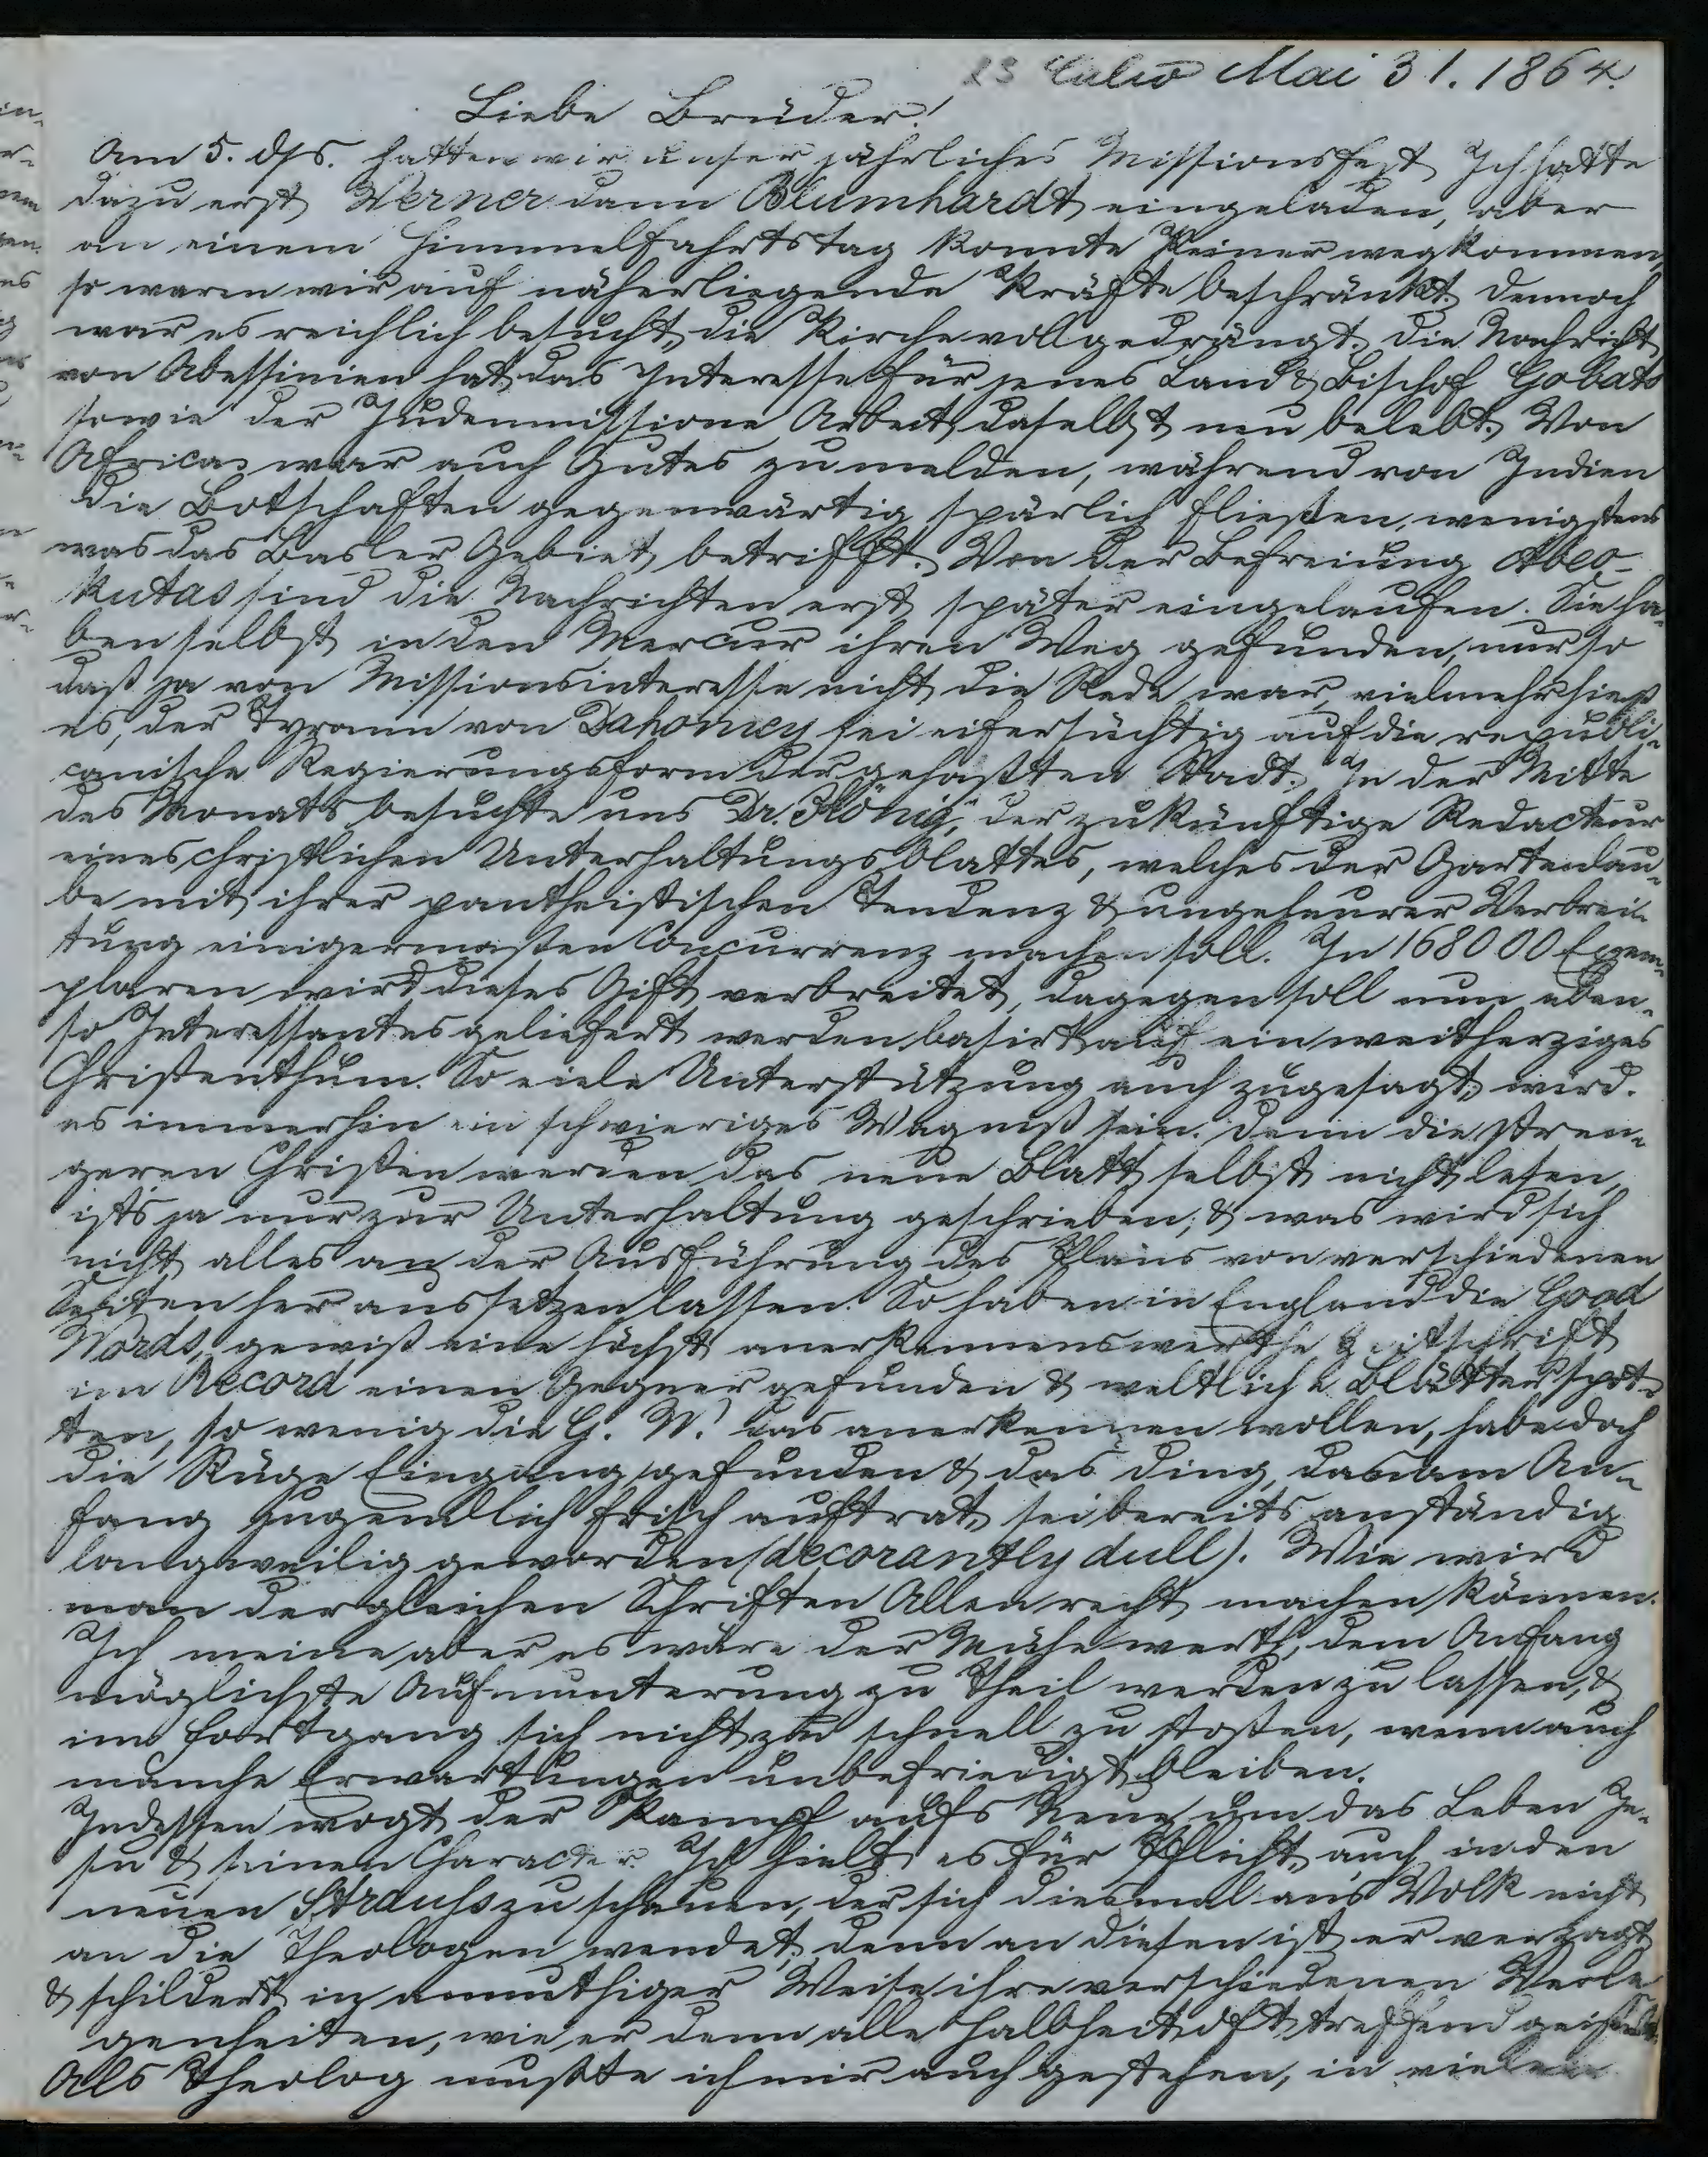 23 Calw Mai 31. 1864.
Liebe Brüder!
Am 5. dss. hatten wir unser jährliches Missionsfest Ich hatte
dazu erst Werner dann Blumhardt eingeladen, aber
an einem Himmelfahrtstag konnte Keiner wegkommen,
so waren wir auf näherliegende Kräfte beschränkt. Dennoch
war es reichlich besucht, die Kirche voll gedrängt. Die Nachricht
von Abessinien hat das Interesse für jenes Land & Bischof Gobats
sowie der Judenmissione Arbeit daselbst neu belebt. Von
Africa war auch Gutes zu melden, während von Indien
die Botschaften gegenwärtig spärlich fließen, wenigstens
was das Basler Gebiet betrifft. Von der Befreiung Abeo-
kutas sind die Nachrichten erst später eingelaufen. Sie ha-
ben selbst in den Mercur ihren Weg gefunden, nur so
daß ja von Missionsinteresse nicht die Rede war, vielmehr hieß
es, der Tyrann von Dahomey sei eifersüchtig auf die republi-
canische Regierungsform der gehaßten Stadt. In der Mitte
des Monats besuchte uns Dr. König, der zukünftige Redacteur
eines christlichen Unterhaltungsblattes, welches der Gartenlau-
be mit ihrer pantheistischen Tendenz & ungeheurer Verbrei-
tung einigermaßen Concurrenz machen soll. In 168000 Exem-
plaren wird dieses Gift verbreitet, dagegen soll nun eben-
so Interessantes geliefert werden basirt auf ein weitherziges
Christenthum. So viele Unterstützung auch zugesagt, wird
es immerhin ein schwieriges Wagniß sein. Denn die stren-
geren Christen werden das neue Blatt selbst nicht lesen,
ists ja nur zur Unterhaltung geschrieben, & was wird sich
nicht alles an der Ausführung des Plans von verschiedenen
Seiten her aussetzen lassen. So haben in England die Good
Words, gewiß eine höchst anerkennenswerthe Zeitschrift
im Record einen Gegner gefunden & weltliche Blätter spot-
ten, so wenig die G. W. das anerkennen wollen, habe doch
die Rüge Eingang gefunden & das Ding, das am An-
fang jugendlich frisch auftrat, sei bereits anständig
langweilig geworden (decorantly dull). Wie wird
man dergleichen Schriften Allen recht machen können.
Ich meine aber es wäre der Mühe werth, dem Anfang
möglichste Aufmunterung zu Theil werden zu lassen, &
im Fortgang sich nicht zu schnell zu stoßen, wenn auch
manche Erwartungen unbefriedigt bleiben.
Indessen wogt der Kampf aufs Neue um das Leben Je-
su & seinen Character. Ich hielt es für Pflicht, auch in den
neuen Strauss zu schauen, der sich diesmal ans Volk nicht
an die Theologen wendet, denn an diesen ist er verzagt
& schildert in anmuthiger Weise ihre verschiedenen Verle
genheiten, wie er denn alle Halbheit oft treffend geißelt.
Als Theolog mußte ich mir auch gestehen, in vielen